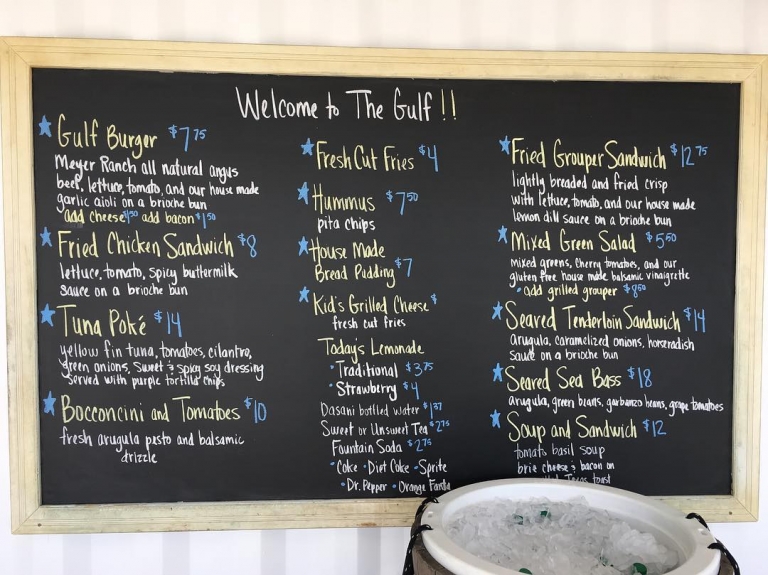 Welcome to The Gulf!!
Gulf Burger $7.75
Meyer Ranch all natural angus
beef, lettuce, tomato, and our house made
garlic aioli on a brioche bun
add cheese $1.50 add bacon $1.50
Fried Chicken Sandwich $8
lettuce, tomato, spicy buttermilk
sauce on a brioche bun
Tuna Poké $14
yellow fin tuna, tomatoes, cilantro,
green onions, sweet & spicy soy dressing
served with purple tortilla chips
Bocconcini and Tomatoes $10
fresh arugula pesto and balsamic
drizzle
Fresh Cut Fries $4
Hummus $7.50
pita chips
House Made
Bread Pudding $7
Kid's Grilled Cheese $
fresh cut fries
Today's Lemonade
• Traditional $3.75
• Strawberry $4
Dasani bottled water $1.37
Sweet or Unsweet Tea $2.75
Fountain Soda $2.75
• Coke • Diet Coke • Sprite
• Dr. Pepper • Orange Fanta
Fried Grouper Sandwich $12.75
lightly breaded and fried crisp
with lettuce, tomato, and our house made
lemon dill sauce on a brioche bun
Mixed Green Salad $5.50
mixed greens, cherry tomatoes, and our
gluten free house made balsamic vinaigrette
• add grilled grouper $8.50
Seared Tenderloin Sandwich $14
arugula, caramelized onions, horseradish
sauce on a brioche bun
Seared Sea Bass $18
arugula, green beans, garbanzo beans, grape tomatoes
Soup and Sandwich $12
tomato basil soup
brie cheese & bacon on
Texas toast